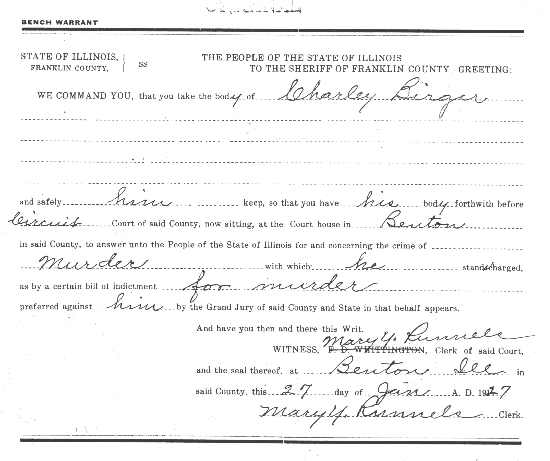 BENCH WARRANT
STATE OF ILLINOIS, FRANKLIN COUNTY, SS
THE PEOPLE OF THE STATE OF ILLINOIS
TO THE SHERIFF OF FRANKLIN COUNTY GREETING:
WE COMMAND YOU, that you take the body of Charley Birger
and safely him keep, so that you have his body forthwith before
Circuit Court of said County, now sitting, at the Court house in Benton
in said County, to answer unto the People of the State of Illinois for and concerning the crime of
Murder with which he stands charged,
as by a certain bill of indictment for murder
preferred against him by the Grand Jury of said County and State in that behalf appears.
And have you then and there this Writ.
Mary Y. Runnels
WITNESS, F. D. WHITTINGTON, Clerk of said Court,
and the seal thereof, at Benton Ill in
said County, this 27 day of Jan A. D. 1927
Mary Y. Runnels Clerk.